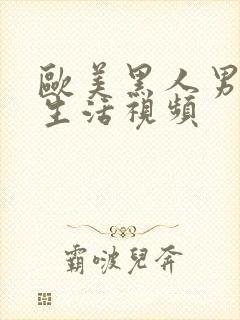 歐美黑人男
生活視頻
霸啵兒奔